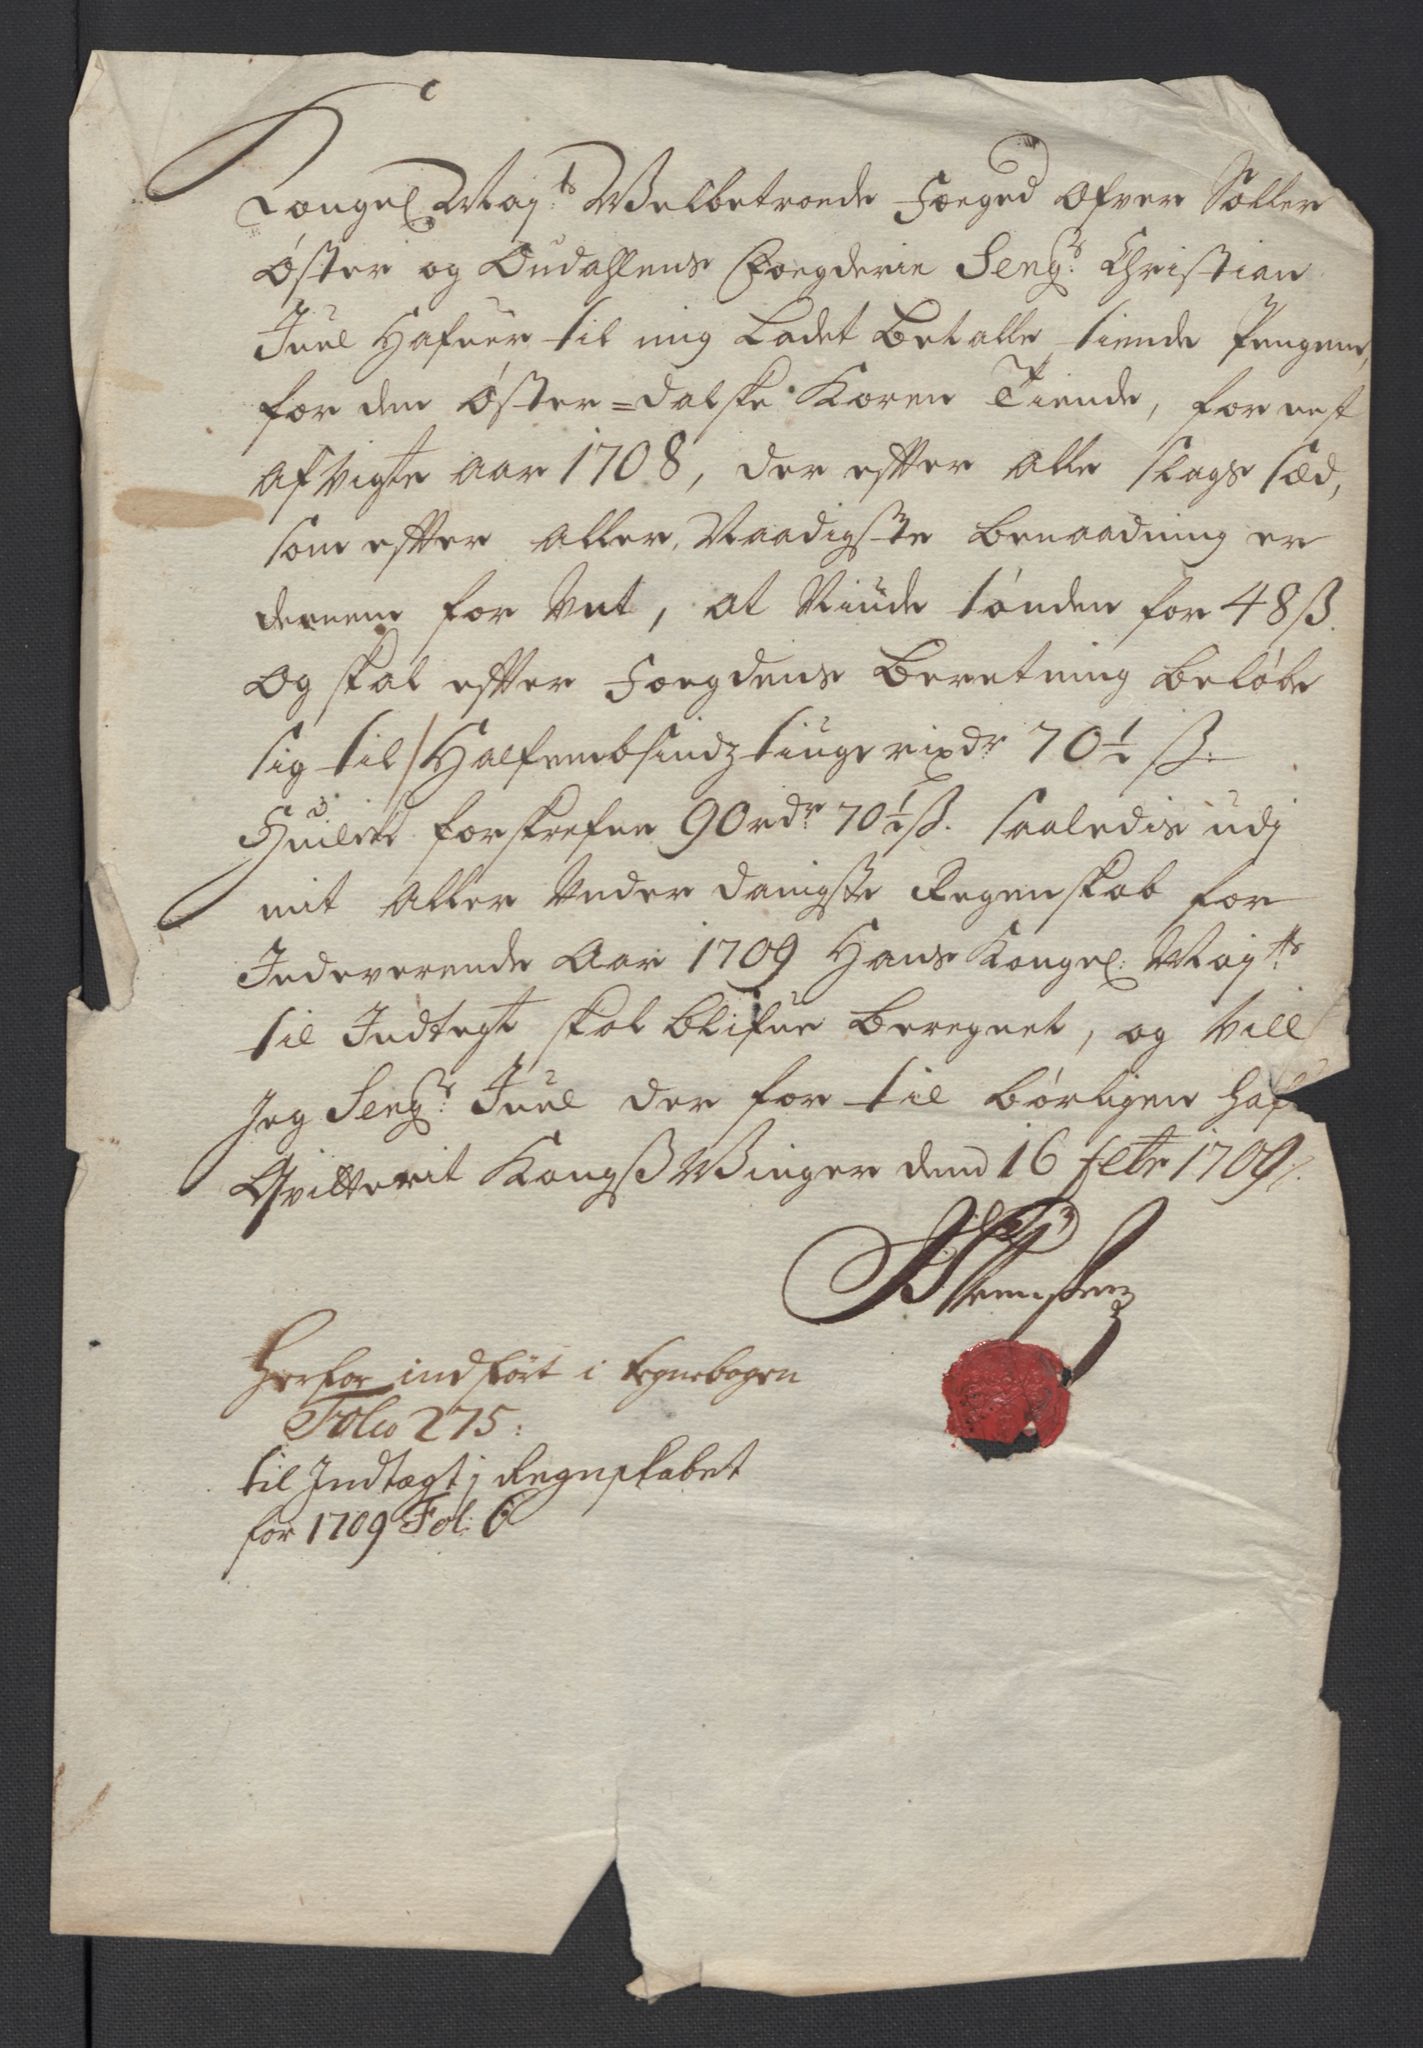 Kongel Maÿ:ts Welbetroede Foeged ofver Soller
Øster og Oudahlens Foegderie Seng:r Christian
Juel Hafuer til mig Ladet Betalle tiende Pengene,
for den Øster=dalske Koren Tiende, for nest
afvigte aar 1708, der effter alle slags sæd,
som effter aller Naadigste benaadning er
dennem for undt, at Niude tønden for 48 ß.
og skal effter Foegdens Beretning beløbe
sig til / Halfembsindztiuge rixdr 70½ ß:
Huilcke forskrefne 90 rdr 70½ ß. saaledis udj
mit Aller Under danigste Regenskab for
Indeverende Aar 1709 Hans Kongel: Maÿ:tts
til Indtegt skal blifue beregnet, og vill
Jeg Seng:r Juel der for til børligen hafue
Qvitterit Kongß Winger dend 16 febr 1709/.
Herfor indført i tegnebogen
Folio 275:
til Indtægt j Regnskabet
for 1709 Fol: 6